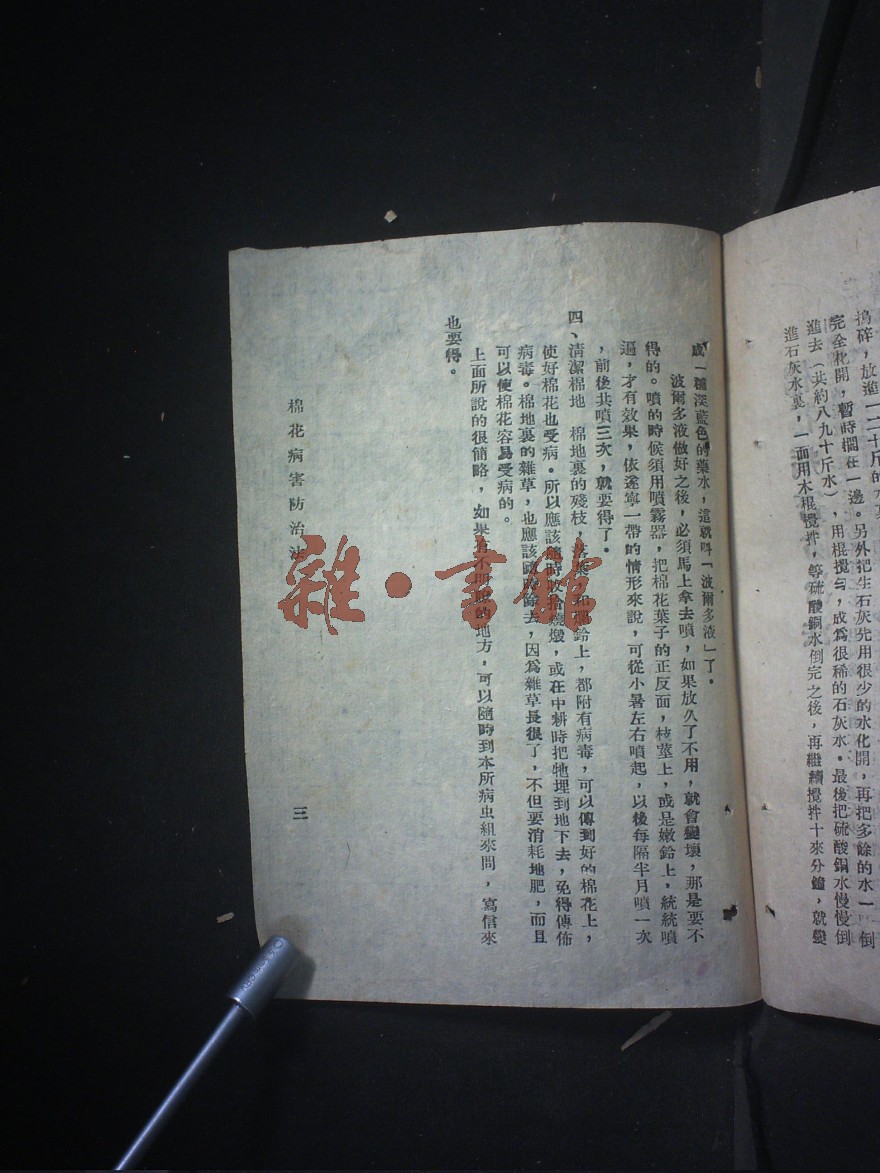 搗碎，放進一二十斤的水裏
完全化開，暫時擱在一邊。另外把生石灰先用很少的水化開，再把多餘的水一 倒
進去（共約八九十斤水），用棍攪勻，成爲很稀的石灰水。最後把硫酸銅水慢慢倒
進石灰水裏，一面用木棍攪拌，等硫酸銅水倒完之後，再繼續攪拌十來分鐘，就變
成一種深藍色的藥水，這就叫「波爾多液」了。
波爾多液做好之後，必須馬上拿去噴，如果放久了不用，就會變壞，那是要不
得的。噴的時候須用噴霧器，把棉花葉子的正反面，枝莖上，或是嫩鈴上，統統噴
遍，才有效果，依遂寧一帶的情形來說，可從小暑左右噴起，以後每隔半月噴一次
，前後共噴三次，就要得了。
四、清潔棉地 棉地裏的殘枝，落葉，和 鈴上，都附有病毒，可以傳到好的棉花上，
使好棉花也受病。所以應該隨時收拾燒燬，或在中耕時把牠埋到地下去，免得傳佈
病毒。棉地裏的雜草，也應該 除去，因爲雜草長很了，不但要消耗地肥，而且
可以使棉花容易受病的。
上面所說的很簡略，如果有不明瞭的地方，可以隨時到本所病虫組來問，寫信來
也要得。
棉花病害防治法
三
雜·書館